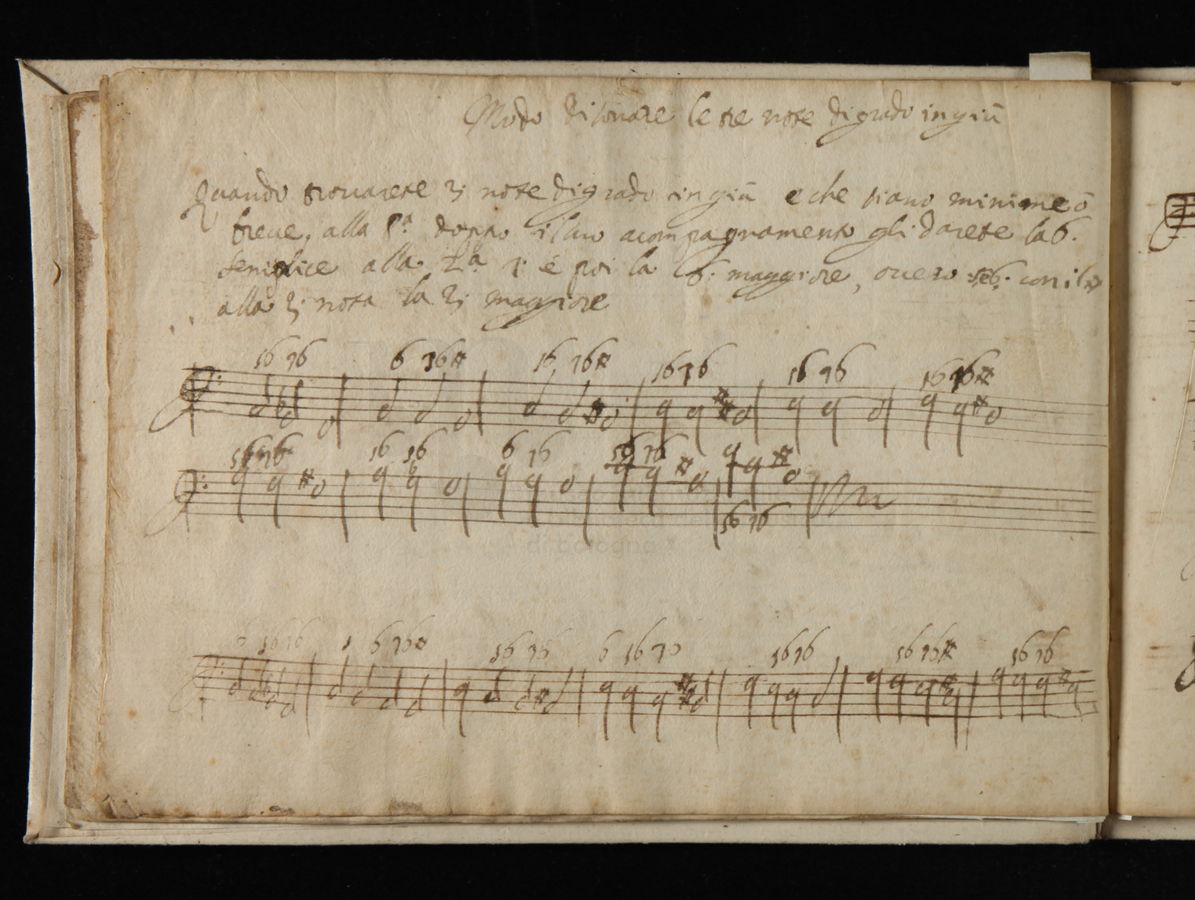 Modo di sonare le tre note di grado in giù
Quando trouarete 3 note di grado in giù e che siano minime ò
breue, alla p.ª doppo il suo acompagnamento gli darete la 6.
semplice alla 2.ª 7. é poi la 6. maggiore, ouero 56. con il #
alla 3 nota la 3 maggiore
56 76 6 76# 56 76# 56 76 56 76 56 76#
56 76 56 56 6 76 56 76
56 76
6 56 76 6 76 56 76 6 56 76 56 76 56 76# 56 76
di bologna